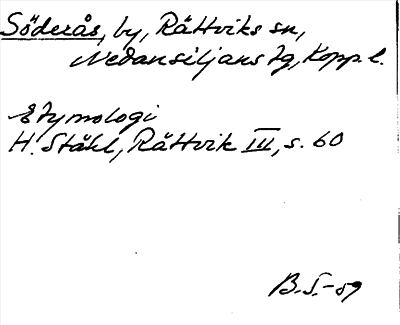 Söderås, by, Rättviks sn,
Nedansiljans tg, Kopp. l.
Etymologi
H. Ståhl, Rättvik III, s. 60
B. S. -59